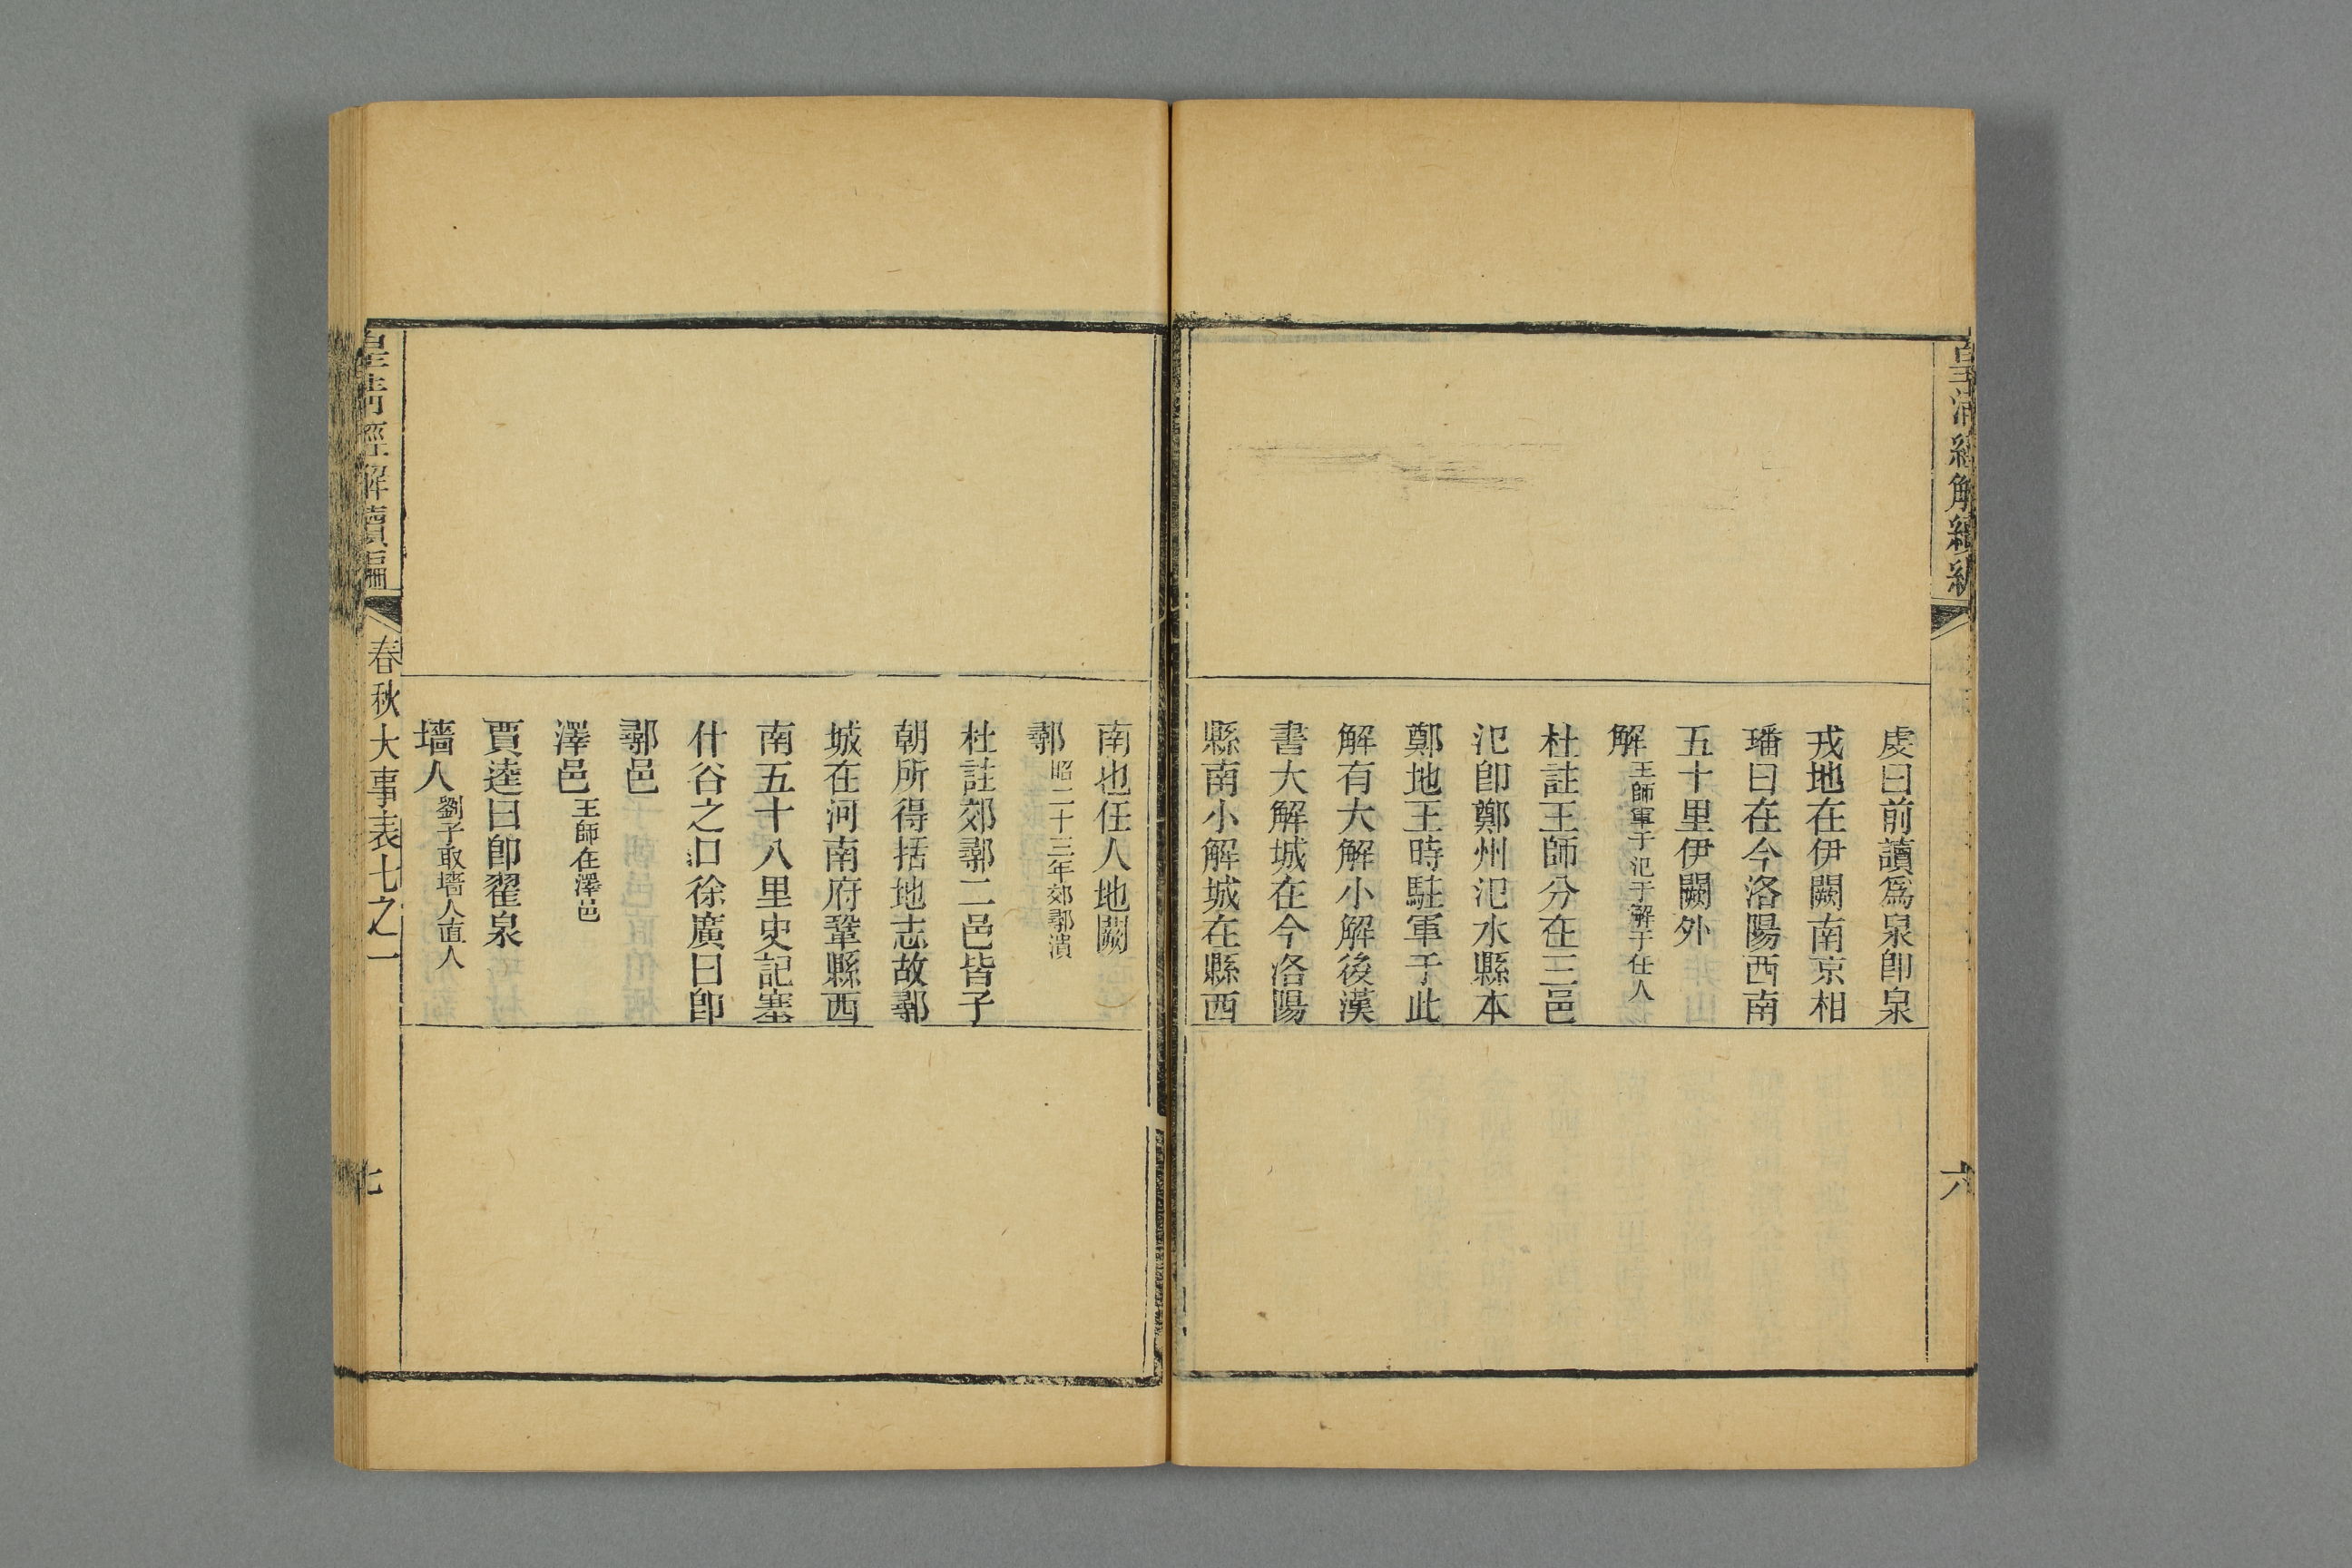 皇清經解續編
六
虔曰前讀爲泉卽泉
戎地在伊闕南京相
璠曰在今洛陽西南
五十里伊闕外
解王師軍于氾于解于任人
杜註王師分在三邑
氾卽鄭州氾水縣本
鄭地王時駐軍于此
解有大解小解後漢
書大解城在今洛陽
縣南小解城在縣西
南也任人地闕
鄩昭二十三年郊鄩潰
杜註郊鄩二邑皆子
朝所得括地志故鄩
城在河南府鞏縣西
南五十八里史記塞
什谷之口徐廣曰卽
鄩邑
澤邑王師在澤邑
賈逵曰卽翟泉
墻人劉子取墻人直人
皇清經解續編
春秋大事表七之一
七